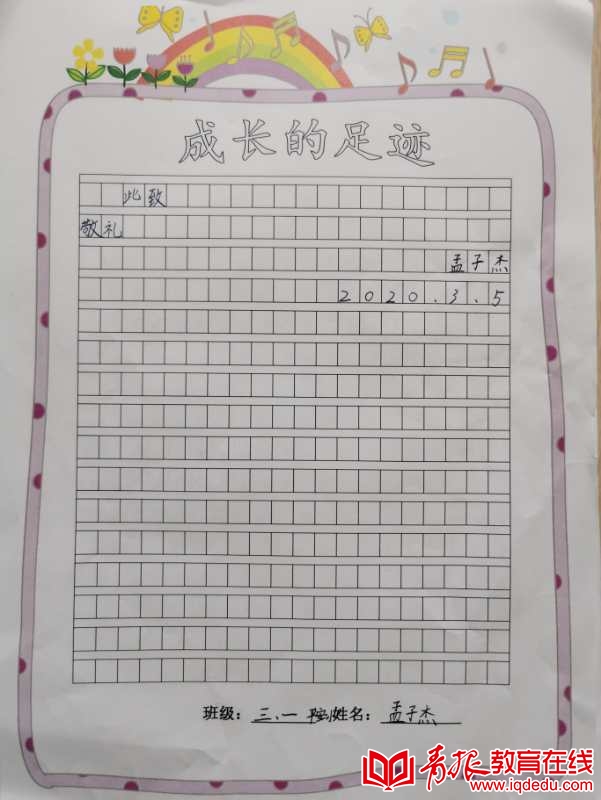 成长的足迹
此致
敬礼
孟子杰
2020.3.5
班级：三.一 姓名：孟子杰
青报教育在线
www.iqdedu.com